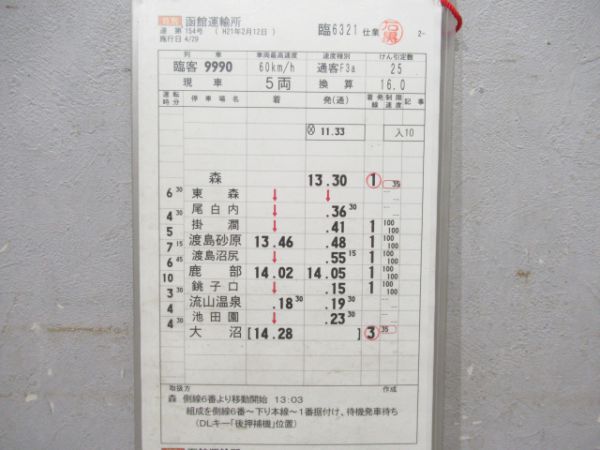 函館運輸所
運 第 154号 ( H21年2月12日 )
施行日 4/29
臨6321 仕業 石黒 2-
列車 車両最高速度 速度種別 けん引定数
臨客 9990 60km/h 通客F3a 25
現車 5両 換算 16.0
運転時分 停車場名 着 発(通) 着発線 制限速度 記事
⊗ 11.33 入10
森 13.30 1 35
6 30 東森 ↓ ↓
4 30 尾白内 ↓ .36 30
5 掛澗 ↓ .41 1 100 100
7 15 渡島砂原 13.46 .48 1 100 100
6 45 渡島沼尻 ↓ .55 15 1 100 100
10 鹿部 14.02 14.05 1 100 100
3 30 銚子口 ↓ .15 1 100 100
4 流山温泉 .18 30 .19 30
4 30 池田園 ↓ .23 30
大沼 [14.28 ] 3 35
取扱方 作成
森 側線6番より移動開始 13:03
組成を側線6番～下り本線～1番据付け、待機発車待ち
(DLキー「後押補機」位置)